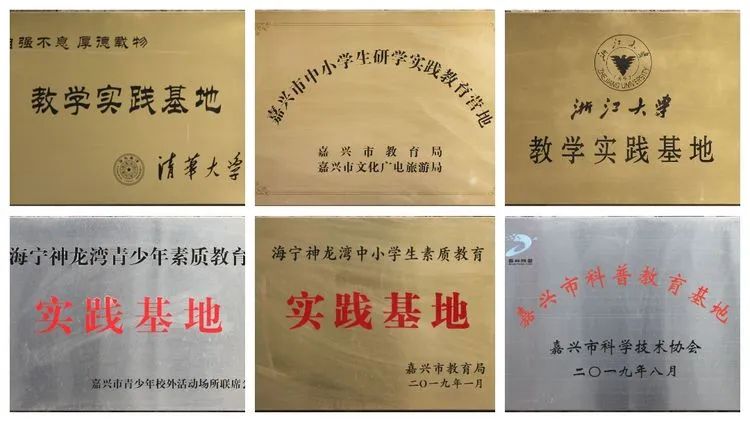 自强不息 厚德载物
教学实践基地
清华大学
嘉兴市中小学生研学实践教育营地
嘉兴市教育局
嘉兴市文化广电旅游局
浙江大学
ZHEJIANG UNIVERSITY
浙江大学
教学实践基地
海宁神龙湾青少年素质教育
实践基地
嘉兴市青少年校外活动场所联席
海宁神龙湾中小学生素质教育
实践基地
嘉兴市教育局
二〇一九年一月
嘉兴市科普教育基地
嘉兴市科学技术协会
二〇一九年八月